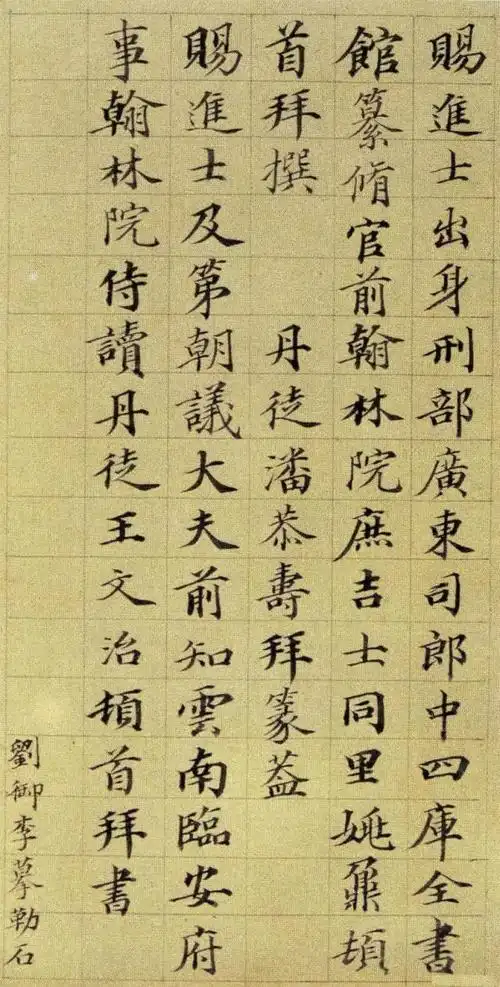 賜進士出身刑部廣東司郎中四庫全書
館纂脩官前翰林院庶吉士同里姚鼐頓
首拜撰　丹徒潘恭壽拜篆蓋
賜進士及第朝議大夫前知雲南臨安府
事翰林院侍讀丹徒王文治頓首拜書
劉御李摹勒石